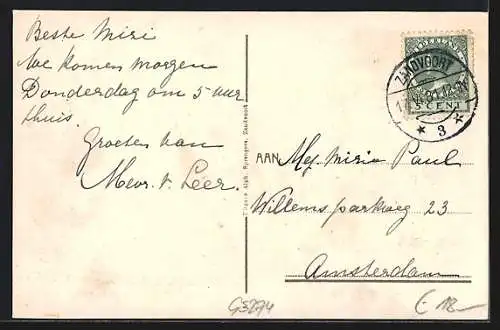 Beste Miri
We komen morgen
Donderdag om 5 uur
thuis.
Groeten van
Mevr. v. Leer.
NEDERLAND
ZANDVOORT
5 CENT
3
AAN Mej. Miria Paul
Willemsparkweg 23
Amsterdam
Uitgave Alph. Zandvoort
G5274
€ 18-